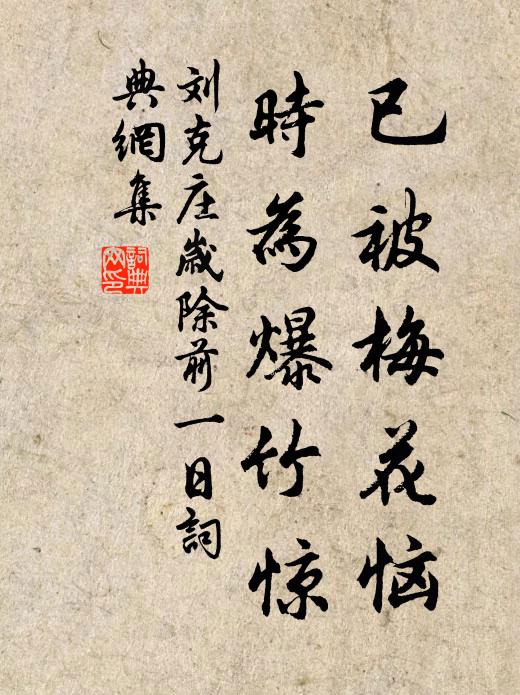 已被梅花恼
時為爆竹惊
刘克庄歲除前一日詞
典網集
詞典